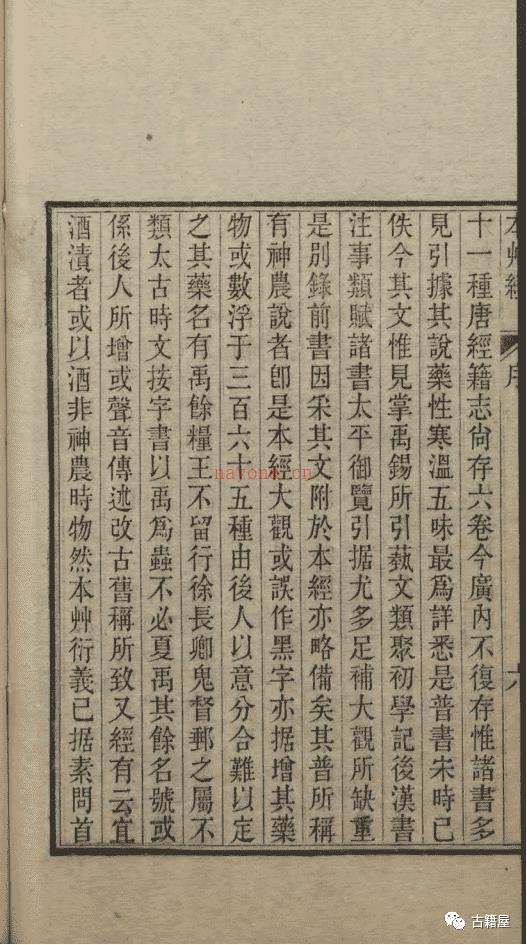 本艸經 序 六
十一種唐經籍志尙存六卷今廣內不復存惟諸書多
見引據其說藥性寒溫五味最爲詳悉是普書宋時已
佚今其文惟見掌禹錫所引蓺文類聚初學記後漢書
注事類賦諸書太平御覽引据尤多足補大觀所缺重
是別錄前書因采其文附於本經亦略備矣其普所稱
有神農說者卽是本經大觀或誤作黑字亦据增其藥
物或數浮于三百六十五種由後人以意分合難以定
之其藥名有禹餘糧王不留行徐長卿鬼督郵之屬不
類太古時文按字書以禹爲蟲不必夏禹其餘名號或
係後人所增或聲音傳述改古舊稱所致又經有云宜
酒漬者或以酒非神農時物然本艸衍義已据素問首
nayona.cn
古籍屋